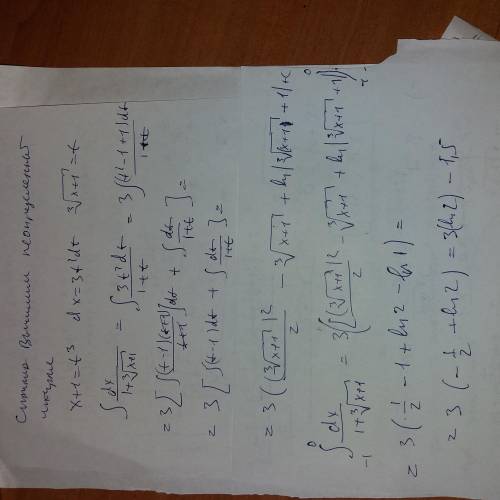 Сначала вычислим неопределенный
интеграл
x+1=t³ dx=3t²dt ∛(x+1)=t
∫ dx/(1+∛(x+1)) = ∫ 3t²dt/(1+t) = 3∫ (t²-1+1)dt/(1+t)
=3[∫ (t-1)(t+1)/(t+1) dt + ∫ dt/(1+t)]=
=3[∫(t-1)dt + ∫ dt/(1+t)]=
=3((∛(x+1))²/2 - ∛(x+1) + ln|∛(x+1)+1|)+c
∫₋₁⁰ dx/(1+∛(x+1)) = 3[(∛(x+1))²/2 - ∛(x+1) + ln|∛(x+1)+1|]₋₁⁰
=3(1/2 -1+ln2-ln1)=
=3(-1/2 +ln2)=3(ln2)-1,5